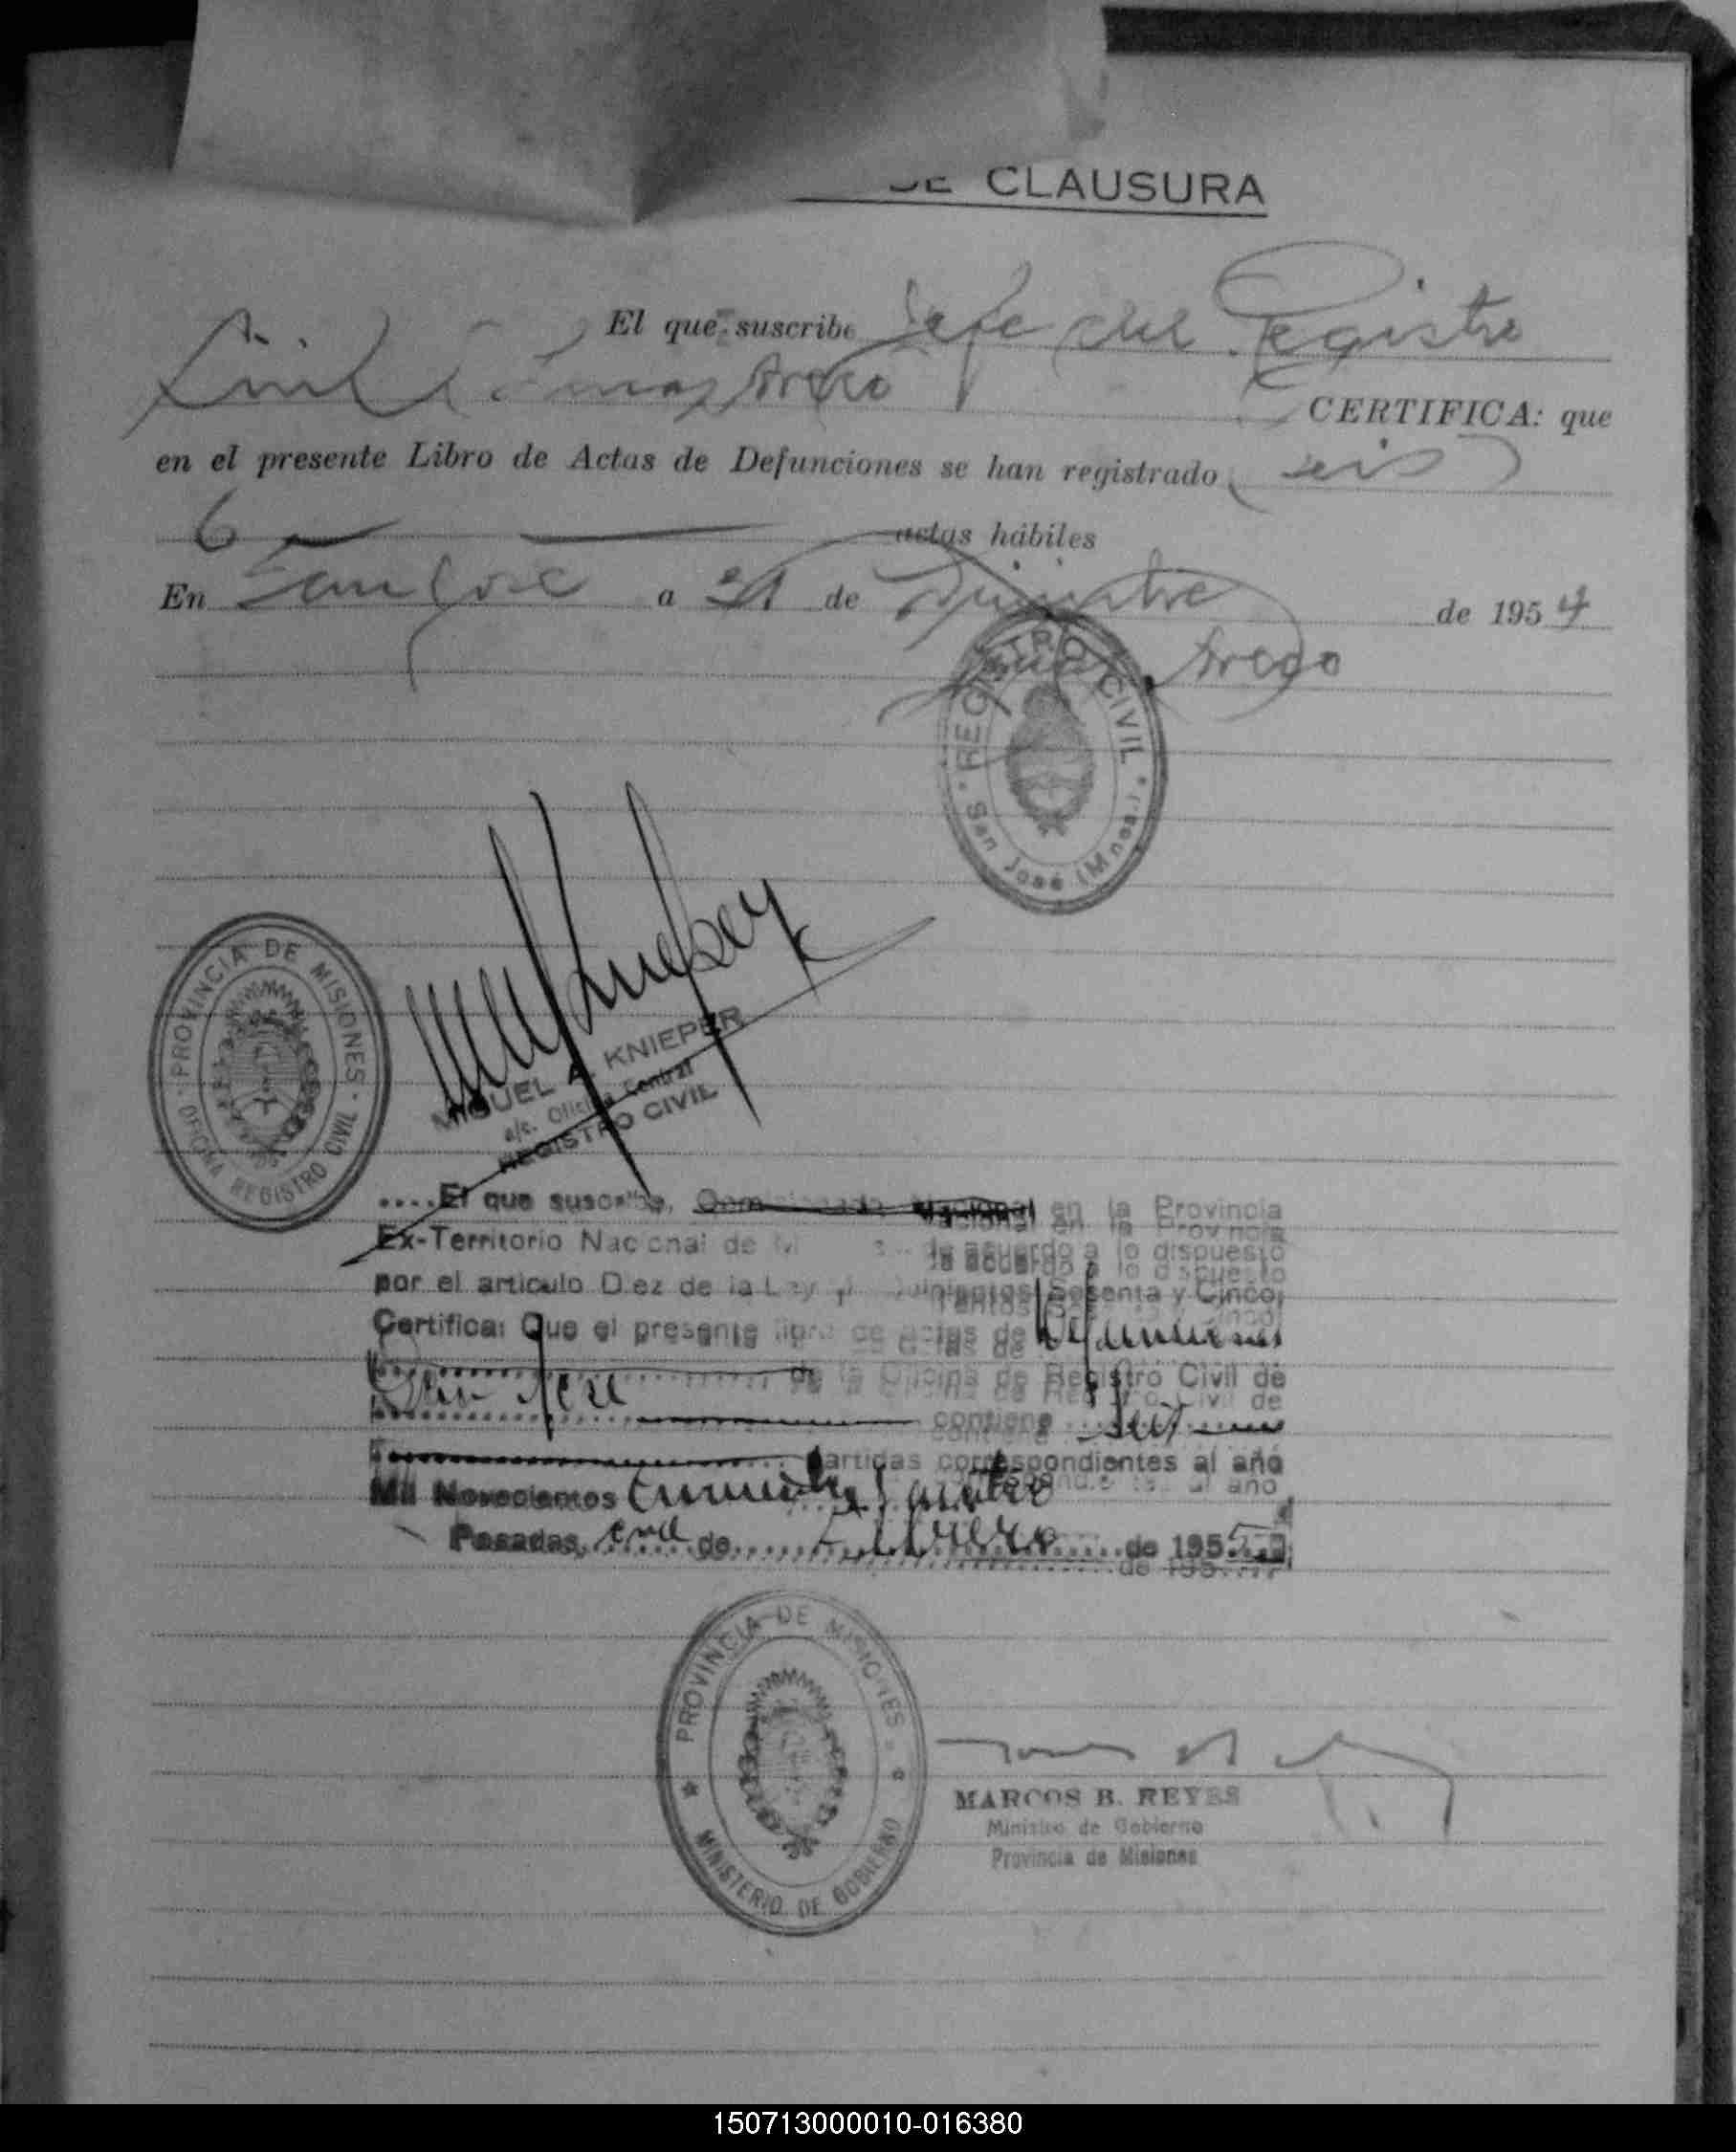 DE CLAUSURA
El que suscribe Jefe del Registro
Civil Arrego
CERTIFICA: que
en el presente Libro de Actas de Defunciones se han registrado (seis)
6 actas hábiles
En San José a 31 de Diciembre de 1954
Arrego
REGISTRO CIVIL
San José (Mnes.)
PROVINCIA DE MISIONES
OFICINA REGISTRO CIVIL
MIGUEL A. KNIEPER
a/c. Oficina Central
REGISTRO CIVIL
....El que suscribe, Comisionado Nacional en la Provincia
Ex-Territorio Nacional de de acuerdo a lo dispuesto
por el artículo Diez de la Ley Quinientos Sesenta y Cinco,
Certifica: Que el presente libro de actas de Defunciones
de la Oficina de Registro Civil de
San José contiene Seis
partidas correspondientes al año
Mil Novecientos Cincuenta y cuatro
Posadas, de Febrero de 1955
PROVINCIA DE MISIONES
MINISTERIO DE GOBIERNO
MARCOS B. REYES
Ministro de Gobierno
Provincia de Misiones
150713000010-016380